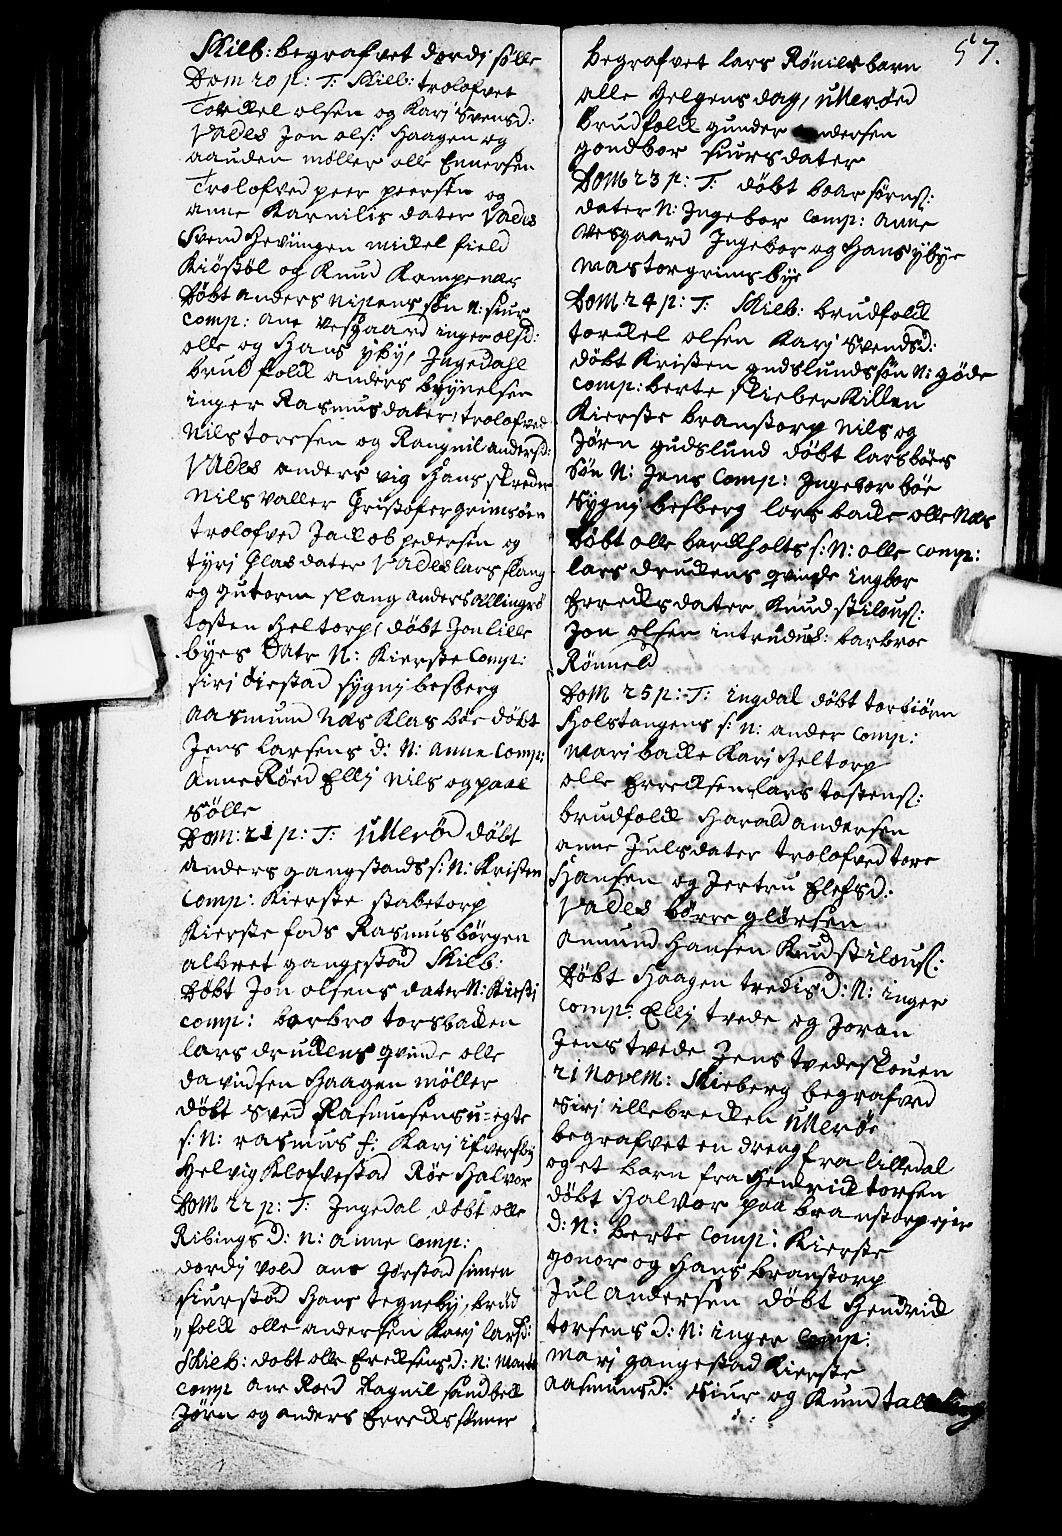 Skieb: begrafvet dordj sølle
Dom 20 p: T: Skieb: trolofvet
Torkel olsen og Karj Svensd:
Vades Jon ols: Haagen og
aauden møller olle Ennersen
Trolofved peer peersen og
anne Karnilis dater Vades
Svend Heviingen mickel field
Kiøsbøl og Knud Kampenæs
Døbt anders nipens søn N: siur
Comp: ane Vesgaard inger olsd:
olle og Hans ÿbÿ, Ingedahl
brudfolk anders brynelsen
inger Rasmusdater, trolofved
Nils toresen og Rangnil andersd:
Vades anders vig Hans skreder
Nils Valler Christofer grimsøen
trolofved Jackob pedersen og
tyrj Olas dater Vades lars slang
og gutorm slang anders allingrø
tosten Heltorp, døbt Jon lille
byes Datr N: Kierste Comp:
sirj ðiestad sygnj besberg
aasmund Næs Klas bøe døbt
Jens larsens d: N: anne Comp:
anne Røed Ellj Nils og paal
sølle
Dom: 21 p: T: Ullerød døbt
anders gangstads s: N: Kristen
Comp: Kierste stabetorp
Kierste fods Rasmus børgen
albret gangestad Skieb:
Døbt Jon olsens dater N: Kirstj
comp: barbro torsbacken
lars druckens qvinde olle
davidsen Haagen møller
døbt Sved Rasmusens u=egte
s: N: rasmus f: Karj ifversbÿ
Helvig Klofvestad Røe Halvor
Dom 22 p: T: Ingedal døbt olle
Ribings D: n: anne Comp:
dordj vold ane Jørstad simen
siurstad Hans tegnebÿ, brud
"folk olle andersen Karj larsd:
Skieb: dobt olle Ereksens D: N: Marte
comp ane Roed Ragnil sandbek
Jørn og anders Erecks sønner
57.
begrafvet lars Rønilds barn
alle Helgens dag, Ullerøed
brudfolk gunder andersen
gondbor siursdater
Dom 23 p: T: døbt boar sørns:
dater N: Ingebor comp: anne
Vesgaard Ingebor og Hans ybye
mastorgrimsbye
Dom 24 p: T: Skieb: brudfolk
torckel olsen Karj Svendsd:
døbt Kristen gudslunds søn N: gøde
comp: berte skieberkillen
Kierste branstorp Nils og
Jørn gudslund døbt lars bøes
søn N: Jens Comp: Ingebor bøe
sygnj besberg lars backe olle Næs
Døbt olle barckholts s: N: olle comp:
lars druckens qvinde ingbor
Erecksdater Knud stilous:
Jon olsen introdus: barbroe
Rønneld
Dom 25 p: T: ingdal døbt torbiørn
Holstangens s: N: ander comp:
marj backe Karj Heltorp
olle Ereksen lars tostens:
brudfolk Harald andersen
anne Julsdater trolofved tore
Hansen og Jertru Elefsd:
Vades børre glørsen
Amund Hansen Knud stilous:
Døbt Haagen tredis D: N: inger
comp: Ellj tvede og Joran
Jens tvede Jens tvedeskouen
21 Novem: Skieberg begrafved
Sirj illebrecken Ullerøe
begrafvet en dreng fra lilledal
og et barn fra Hendrick torsen
døbt Halvor paa branstorpejer
d: N: berte Comp: Kierste
gonor og Hans branstorp
Jul andersen døbt Hendrick
torsens D: N: inger comp:
marj gangestad Kierste
aasmunsd: Siur og Knud